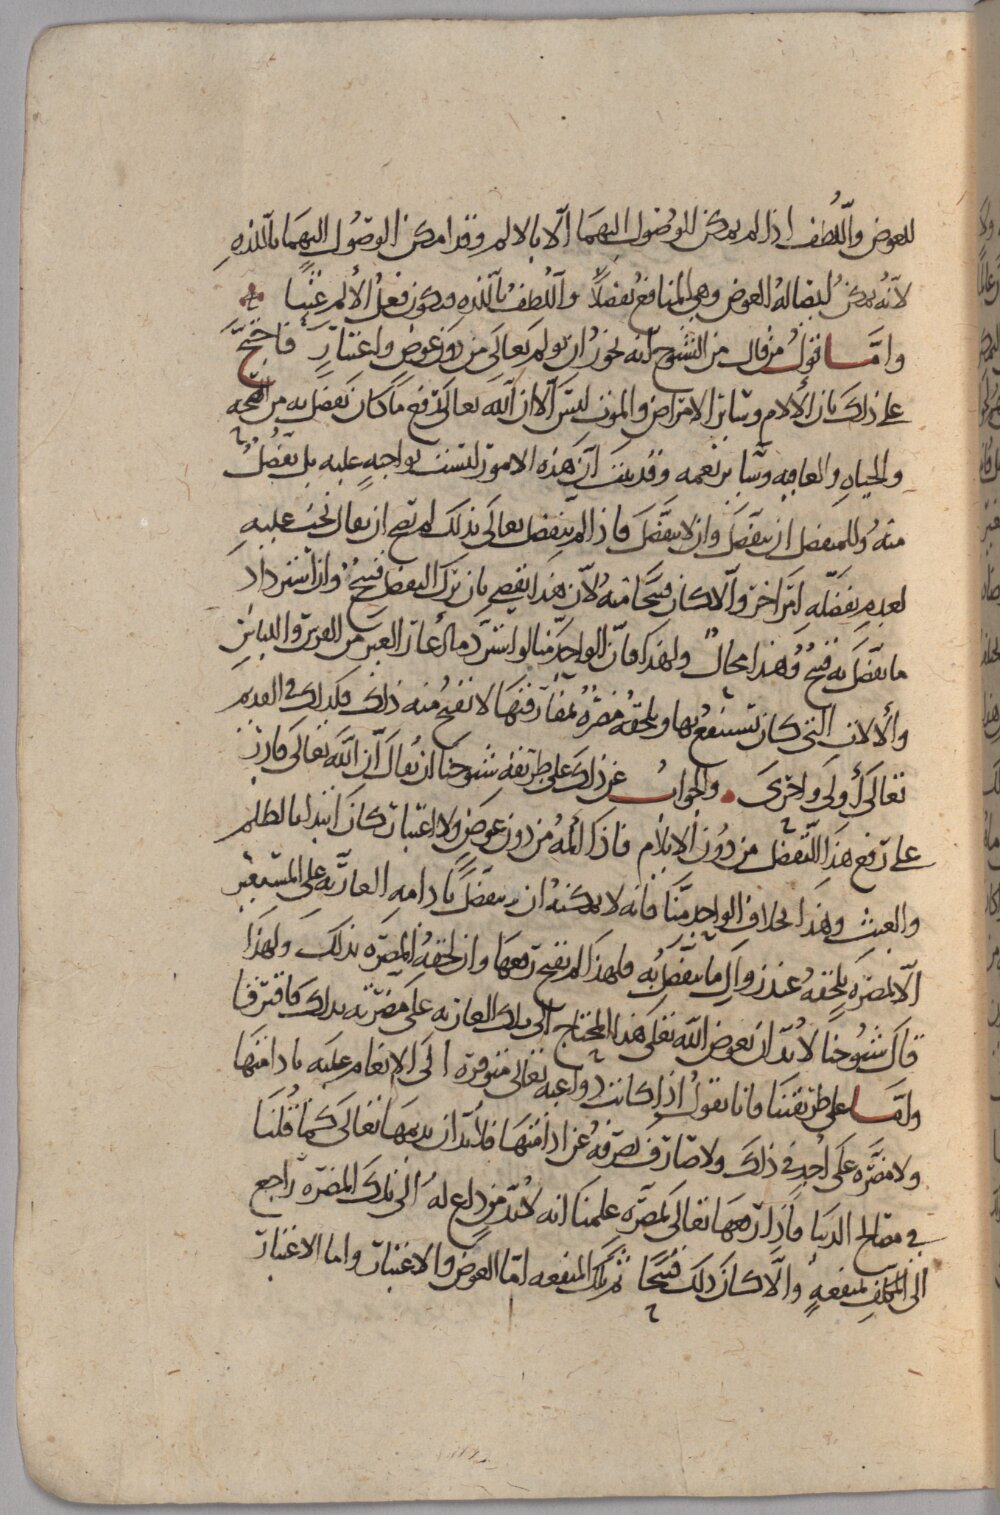 للعوض واللطف اذا لم يمكن الوصول اليهما الا بالالم وقد امكن الوصول اليهما باللذه
لانه يمكن ايصاله العوض وهي المنافع تفضلا واللطف باللذه فيكون فعل الألم عبثا
واما قول من قال من الشيوخ انه يجوز ان يولم تعالى من دون عوض واعتبار فاحتج
على ذلك بان الألام وسائر الامراض والموت ليس الا ان الله تعالى رفع ما كان تفضل به من الصحه
والحياه والعافيه وسائر نعمه وقد بينا ان هذه الامور ليست بواجبه عليه بل تفضل
منه وللمتفضل ان يتفضل وان لا يتفضل فاذا لم يتفضل تعالى بذلك لم يصح ان يقال يجب عليه
لعدم تفضله امر اخر والا كان قبيحا منه لان هذا يقضي بان ترك التفضل قبيح وان استرداد
ما تفضل به قبيح وهذا محال ولهذا فان الواحد منا لو استرد ما أعار الغير من الفرس واللباس
والألات التي كان يستنفع بها ويلحقه مضره بمفارقتها لا يقبح منه ذلك فكذلك القديم
تعالى أولى واحرى والجواب عن ذلك على طريقه شيوخنا ان يقال ان الله تعالى قادر
على رفع هذا التفضل من دون الايلام فاذا المه من دون عوض ولا اعتبار كان ابتداء بالظلم
والعبث وهذا بخلاف الواحد منا فانه لا يمكنه ان يتفضل بادامه العاريه على المستعير
الا بمضره يلحقه عند زوال ما يتفضل به فلهذا لم يقبح رفعها وان لحقه المضره بذلك ولهذا
قال شيوخنا لا بد ان يعوض الله تعالى هذا المحتاج الى تلك العاريه على مضرته بذلك فافترقا
واما على طريقتنا فانا نقول اذا كانت دواعيه تعالى متوفره الى الانعام عليه بادامتها
ولا مضره على احد في ذلك ولا صارف يصرفه عن ادامتها فلا بد ان يديمها تعالى كما قلنا
في مصالح الدنيا فاذا رفعها تعالى بمضره علمنا انه لا بد من داع له الى تلك المضره راجع
الى المكلف لمنفعه والا كان ذلك قبيحا ثم تلك المنفعه اما العوض والاعتبار واما الاعتبار